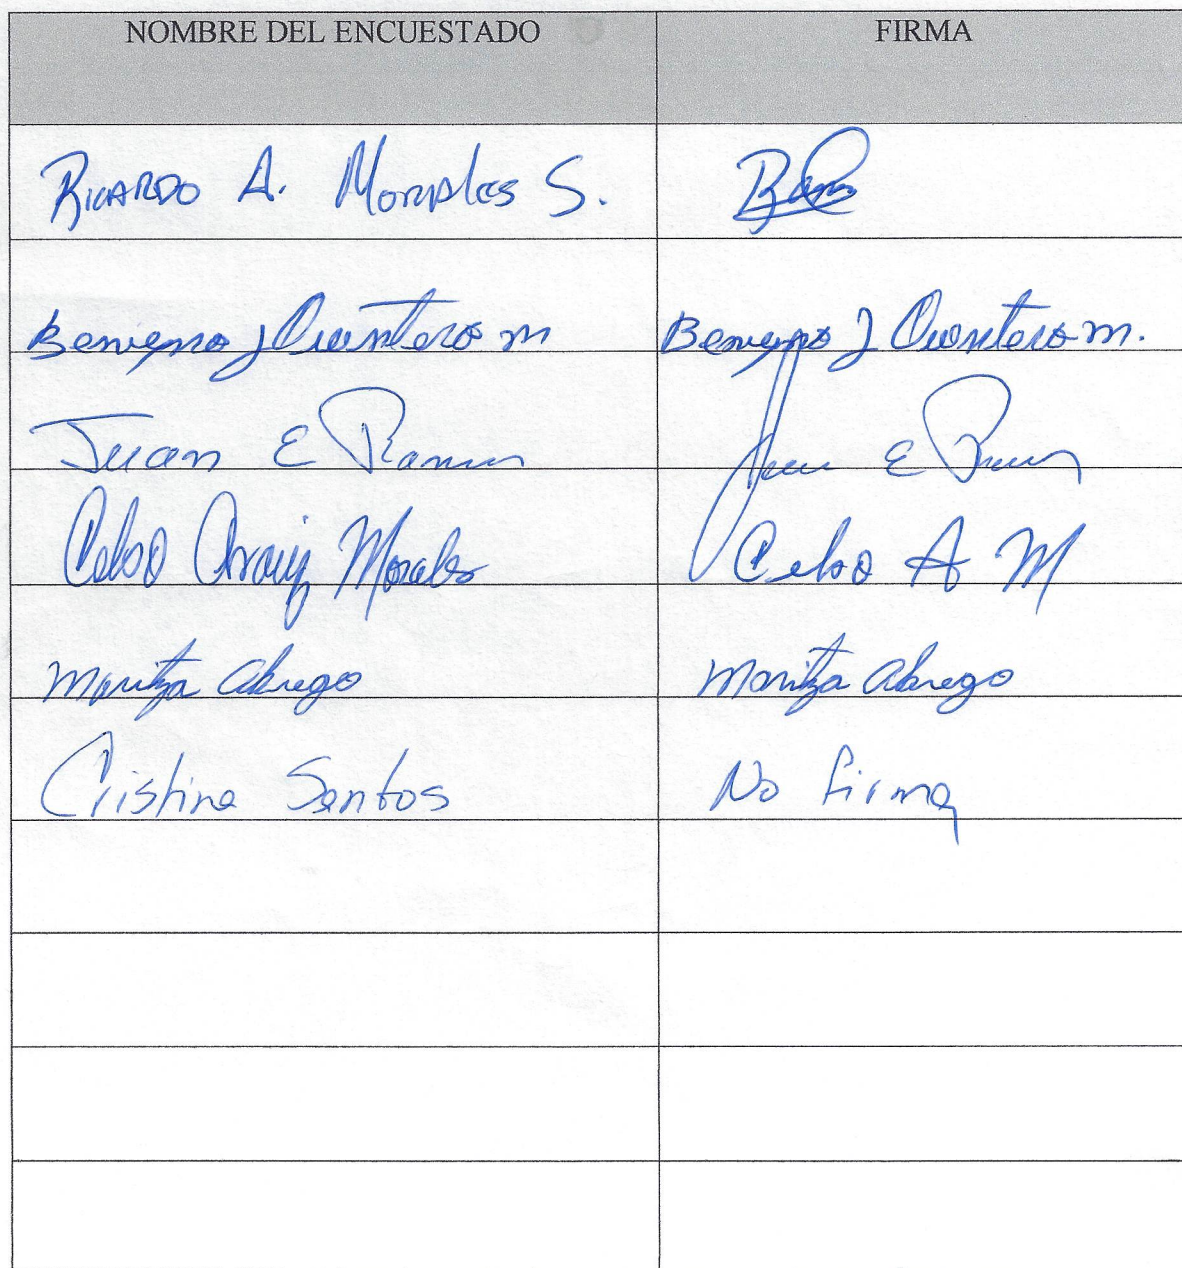 NOMBRE DEL ENCUESTADO FIRMA
RICARDO A. Morales S.
Benigno J Quintero m Benigno J Quintero m.
Juan E Juan E
Celso Arauz Morales Celso A M
Maritza abrego Maritza abrego
Cristina Santos No firma